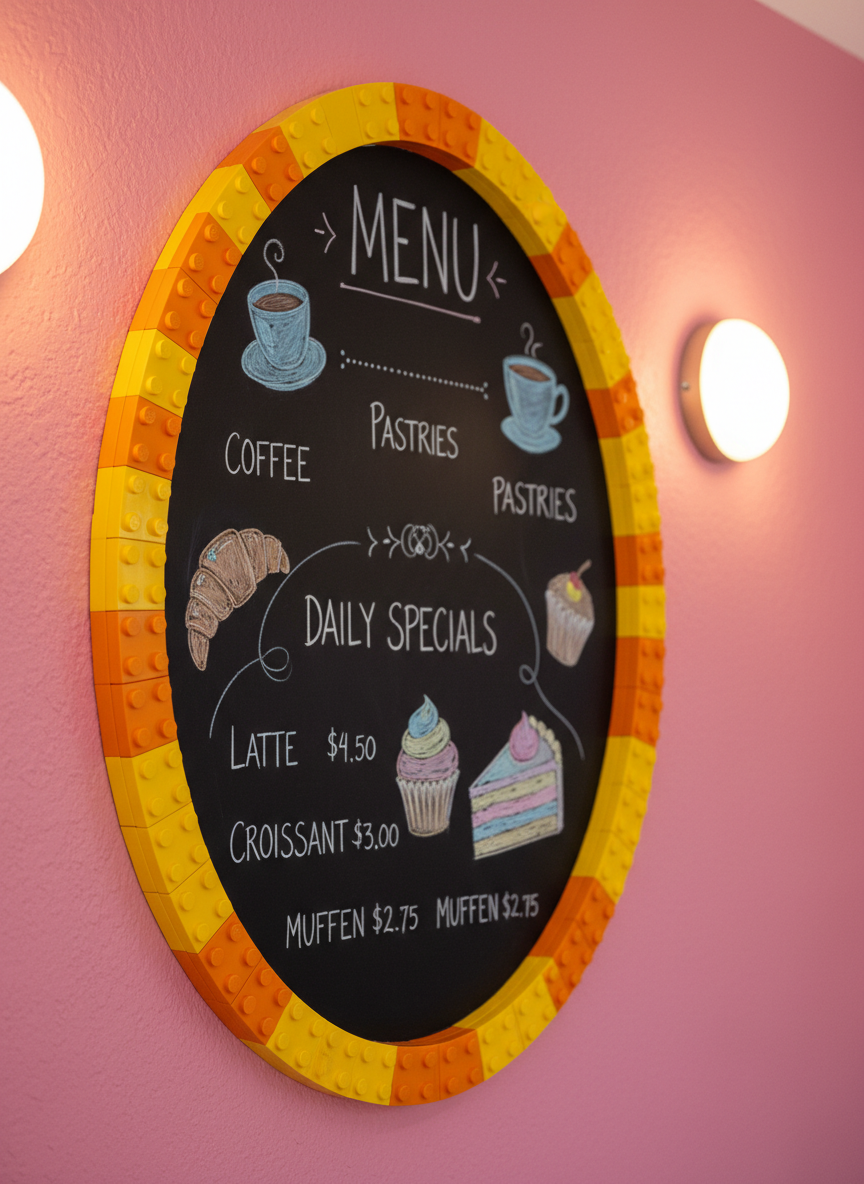 MENU
PASTRIES
COFFEE
PASTRIES
DAILY SPECIALS
LATTE $4.50
CROISSANT $3.00
MUFFEN $2.75 MUFFEN $2.75